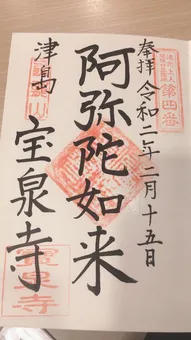 奉拝令和二年二月十五日
第四番
阿弥陀如来
津島
宝泉寺
寳泉寺